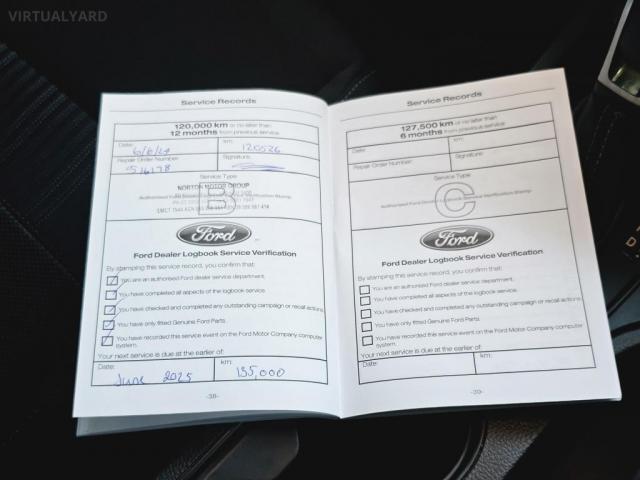 VIRTUALYARD
Service Records
120,000 km or no later than
12 months from previous service.
Date:
km:
6/6/24
120526
Repair Order Number:
Signature:
516178
Service Type
NORTON MOTOR GROUP
B
Ford
Ford Dealer Logbook Service Verification
By stamping this service record, you confirm that:
You are an authorised Ford dealer service department.
You have completed all aspects of the logbook service.
You have checked and completed any outstanding campaign or recall actions.
You have only fitted Genuine Ford Parts.
You have recorded this service event on the Ford Motor Company computer
system.
Your next service is due at the earlier of:
Date:
km:
June 2025
135,000
-38-
Service Records
127,500 km or no later than
6 months from previous service.
Date:
km:
Repair Order Number:
Signature:
Service Type
Authorised Ford Dealer Logbook Service Verification Stamp
C
Ford
Ford Dealer Logbook Service Verification
By stamping this service record, you confirm that:
You are an authorised Ford dealer service department.
You have completed all aspects of the logbook service.
You have checked and completed any outstanding campaign or recall actions.
You have only fitted Genuine Ford Parts.
You have recorded this service event on the Ford Motor Company computer
system.
Your next service is due at the earlier of:
Date:
km:
-39-
D